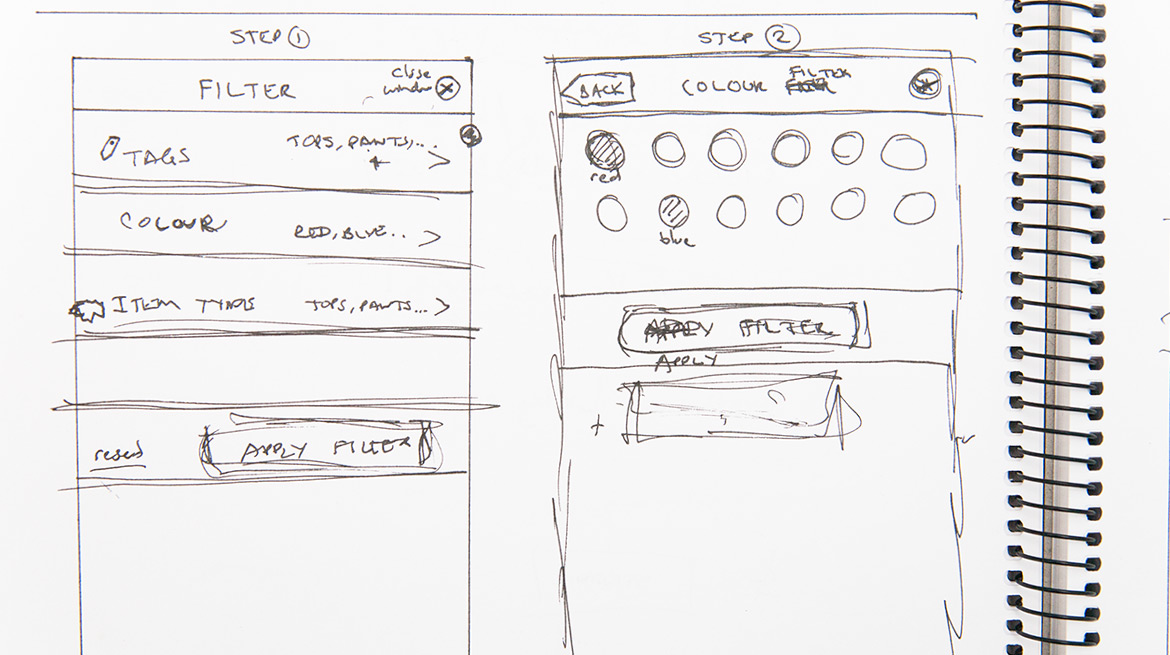 STEP 1
FILTER
close
window
TAGS
TOPS, PANTS, ...
COLOUR
RED, BLUE..
ITEM TYPES
TOPS, PANTS...
APPLY FILTER
STEP 2
BACK
COLOUR FILTER
red
blue
APPLY FILTER
APPLY